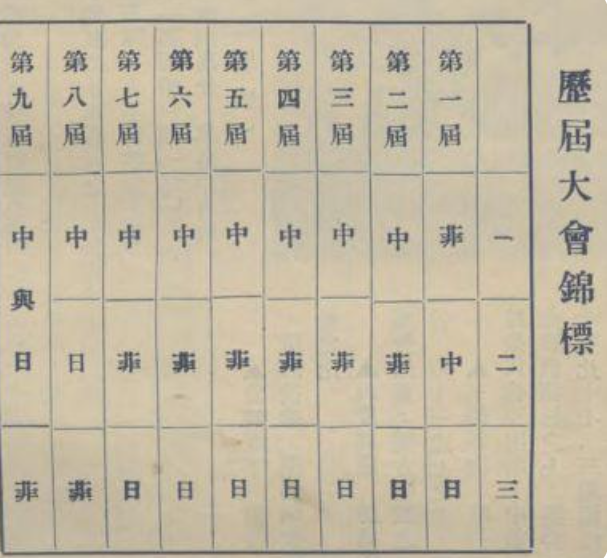 歷屆大會錦標
一 二 三
第一屆 菲 中 日
第二屆 中 菲 日
第三屆 中 菲 日
第四屆 中 菲 日
第五屆 中 菲 日
第六屆 中 菲 日
第七屆 中 菲 日
第八屆 中 日 菲
第九屆 中與日 菲